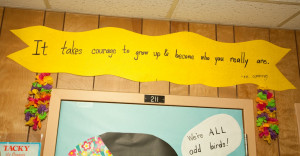 It takes courage to grow up & become who you really are.
- e.e. cummings
211
We're ALL
odd birds!
TACKY